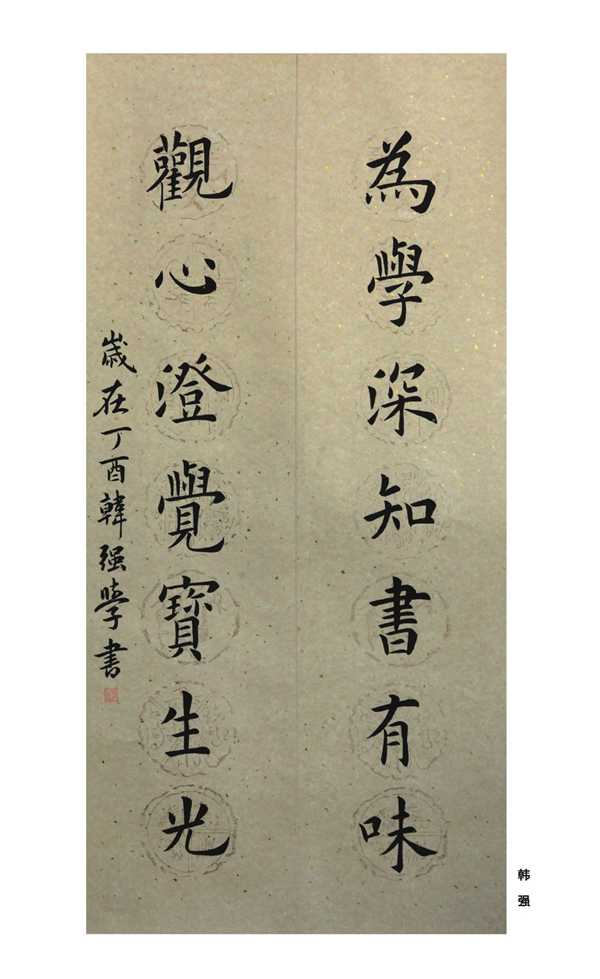 為學深知書有味
觀心澄覺寶生光
歲在丁酉韓强學書
韩强